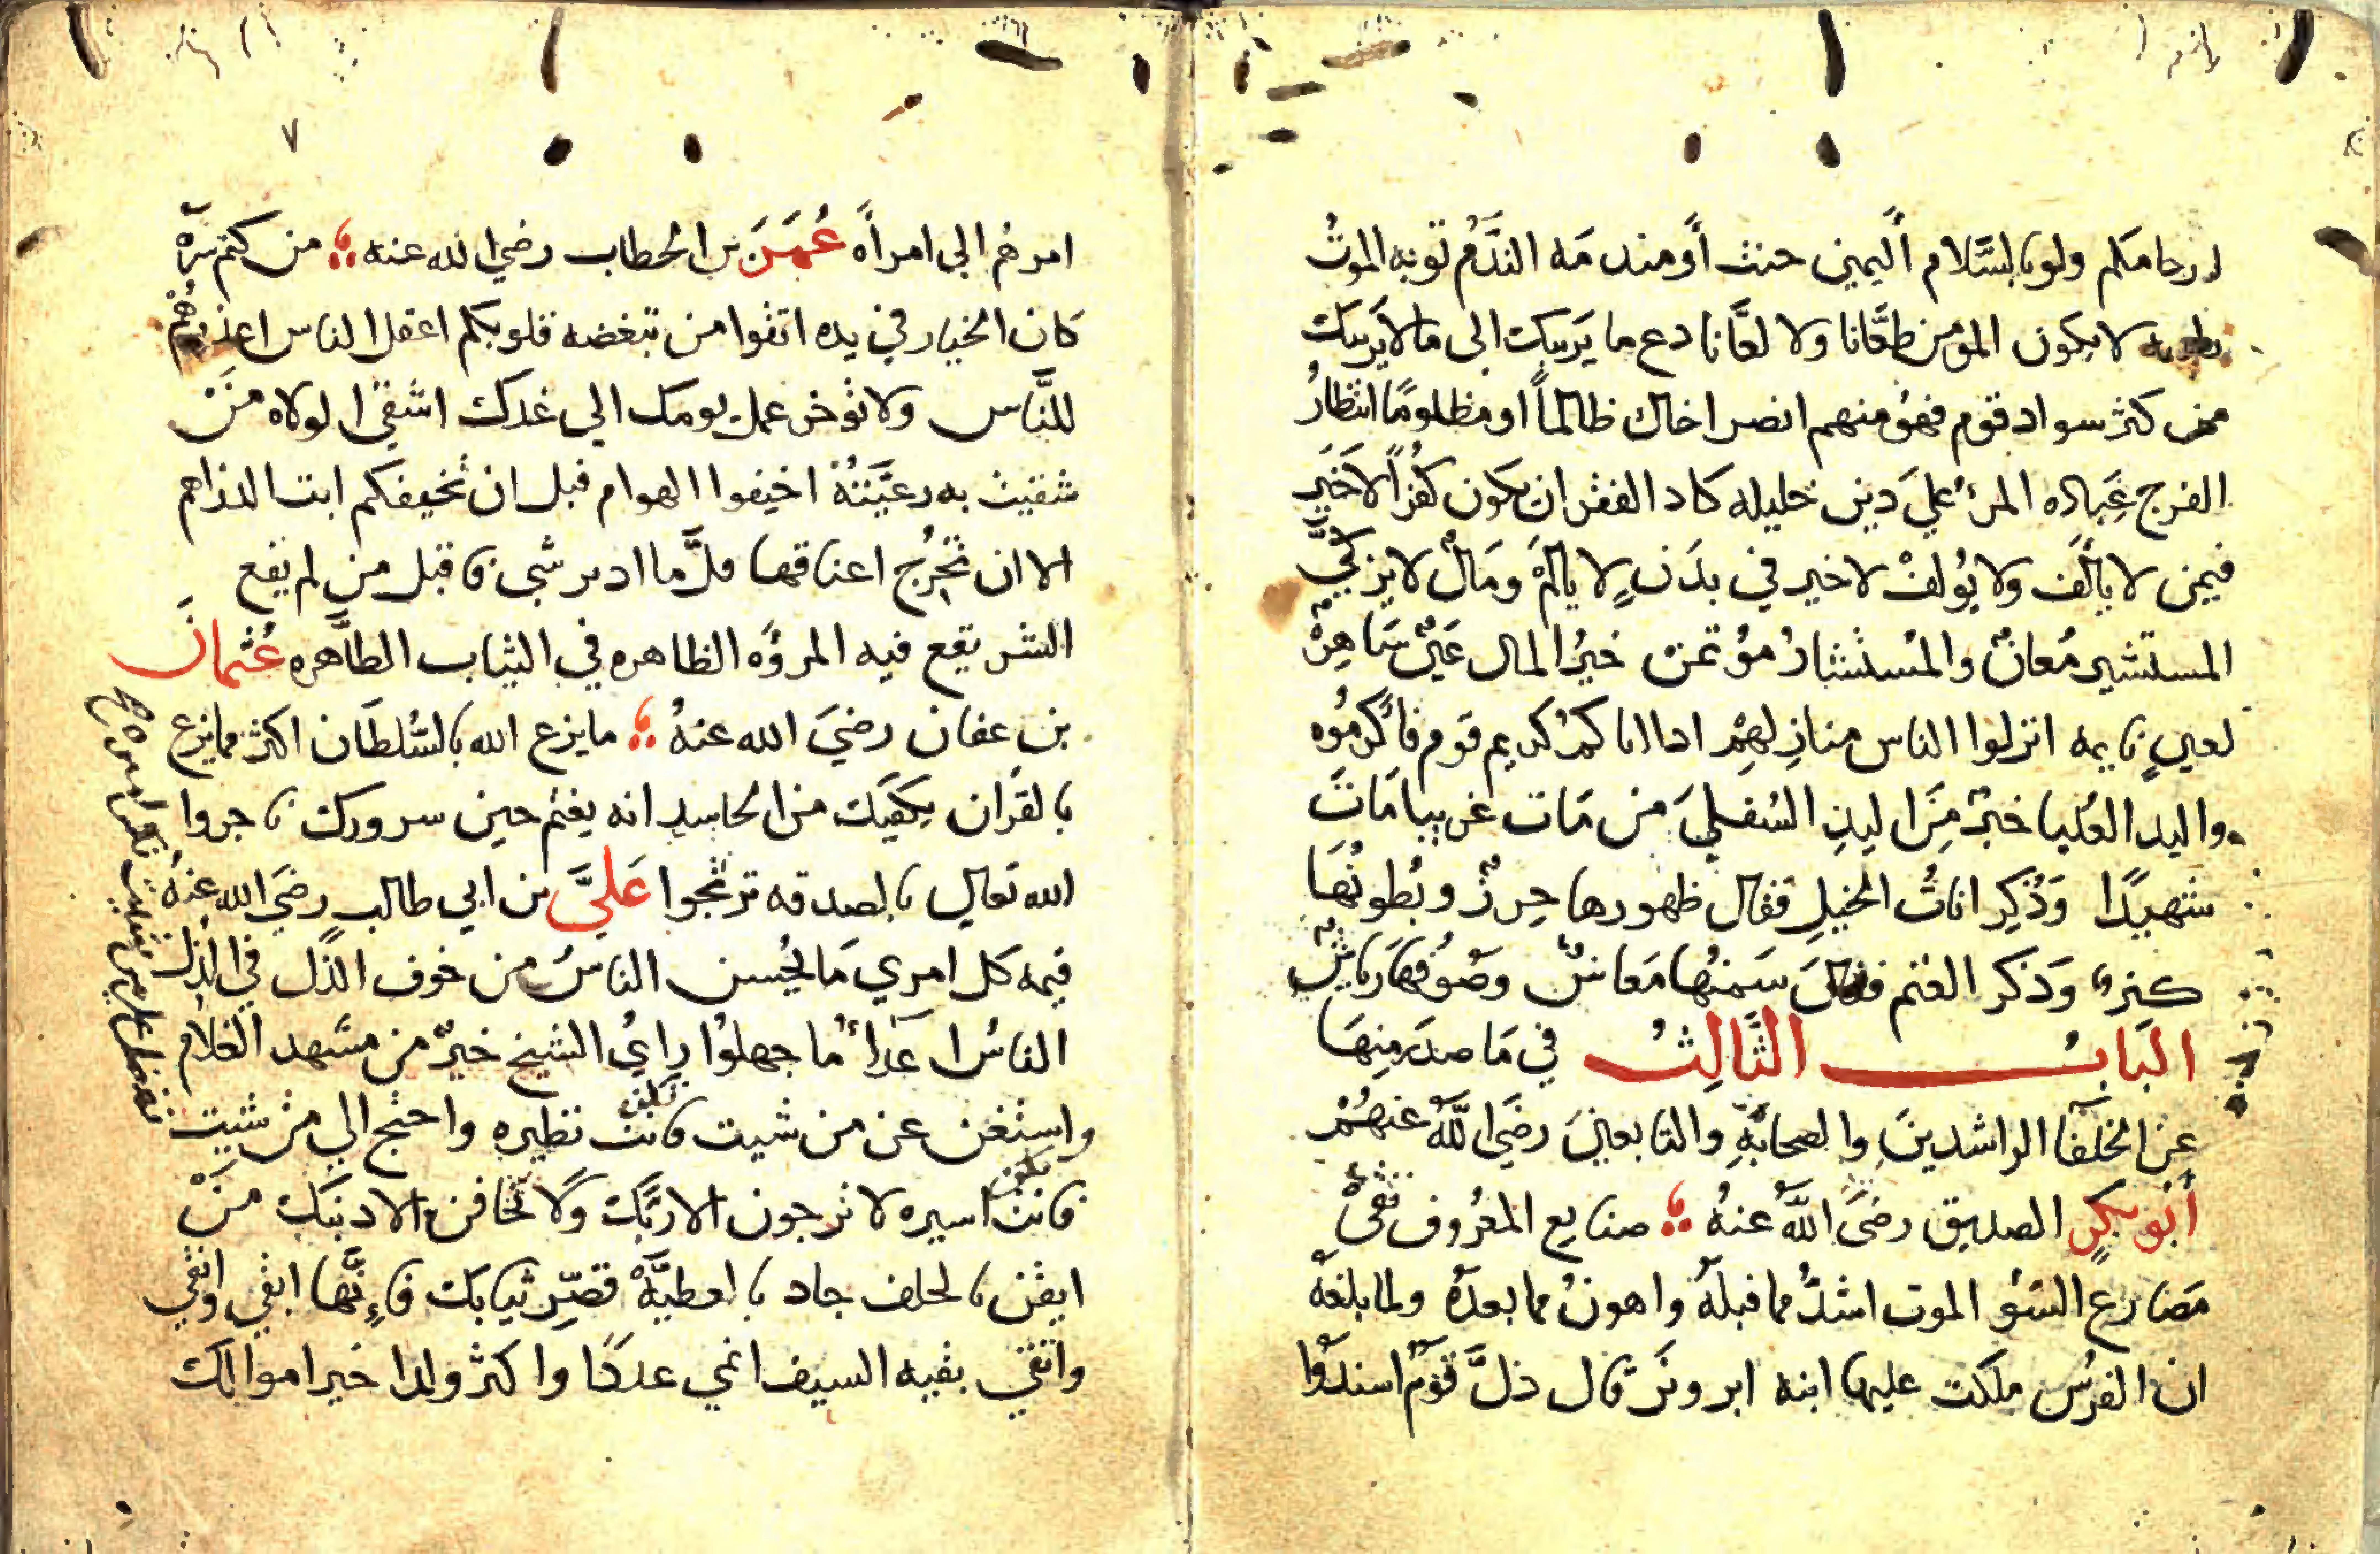 ارحامكم ولو بالسَّلام اليمين حنث أو مندمَه النَّدَمُ توبه الموتُ
لا يكون المؤمن طعَّانا ولا لعَّانا دع ما يَريبك الى ما لا يَريبك
من كثر سواد قوم فهوُ منهم انصر اخاك ظالماً او مظلومًا انتظارُ
الفرج عَبادَه المرءُ عليَ دين خليله كاد الفقر ان يكون كفراً لا خَيرَ
فيمن لا يألَف ولا يُولفْ لا خير في بدَنٍ لا يألمَ ومَالٌ لا يزكيَّ
المستشير مُعانٌ والمُستشارُ مؤتمن خيرُ المال عَينٌ سَاهِرهٌ
لعينٍ نايمه انزلوا الناس منازِلهِمْ اذا اتاكمْ كريم قوم فاكرموُه
واليد العُليا خيرٌ مِنَ اليدِ السُفلىَ من مَات غريبا مَاتَ
شهيدًا وَذُكِر اناثُ الخيلِ فقال ظهورها حِرزٌ وبُطونُهَا
كنزٌ وَذكر الغنم فقالَ سَمنُها مَعاشٌ وصُوفُهَا رِياشٌ
البَابُ الثَّالِثُ في مَا صدَرَ مِنهَا
عن الخلَفا الراشدينَ والصحابَةِ والتابعينَ رضَي اللَّهُ عنهُمْ
أبُو بكرٍ الصديق رضَى اللَّهُ عنهُ صنايع المعرُوف تقىْ
مَصَارع السَّوُ الموت اشدُّ مما قبلَهُ واهونُ مما بعدَهُ ولما بلغهُ
ان الفرُس ملكت عليها ابنه ابرويَز قال ذلَّ قوٌم اسندوُا
٧
امرهُم الى امرأَه عُمَرَ بن الخطاب رضي الله عنه من كتم سرَّه
كان الخيار في يده اتقوا من تبغضه قلوبكم اعقل الناس اعذرهُم
للنَّاس ولا تؤخر عمل يومك الي غدك اشقَى الولاه مَنْ
شقيت به رعيَّتُهُ اخيفوا الهوام قبل ان تُخيفكم ابت الدراهم
الا ان تُخرُج اعناقها قلَّ ما ادبر شي فاقبل من لم يقع
الشر يقع فيه المروُّه الظاهره في الثياب الطَّاهره عُثمانَ
بن عفان رضيَ الله عنهُ ما يزع الله بالسُّلطَان اكثر مما يزع
بالقرَان يكفيَك من الحاسِدِ انه يغتم حين سرورك تاجروا
الله تعالي بالصدقه تربحُوا عَليَّ بن ابي طالب رضَي الله عنهُ
قيمه كل امري مَا يُحسن الناسُ من خوف الذّل في الذُلّ
الناسُ اعَداءُ ما جهلوُا رايُ الشيخ خيرٌ من مشهد الغلامِ
واستغن عن من شيت فانتْ نظيره واحتج الي من شيت
تكون
فانت اسيره لا ترجون الا ربَّك ولا تخافن الا ذنبَك مَنْ
تكون
ايقن بالخلف جاد بالعطيَّهْ قصِّر ثيابك فاِنَّها ابقي وانقي
واتقي بقيه السيف انمي عددًا واكثر ولدا خير اموالك